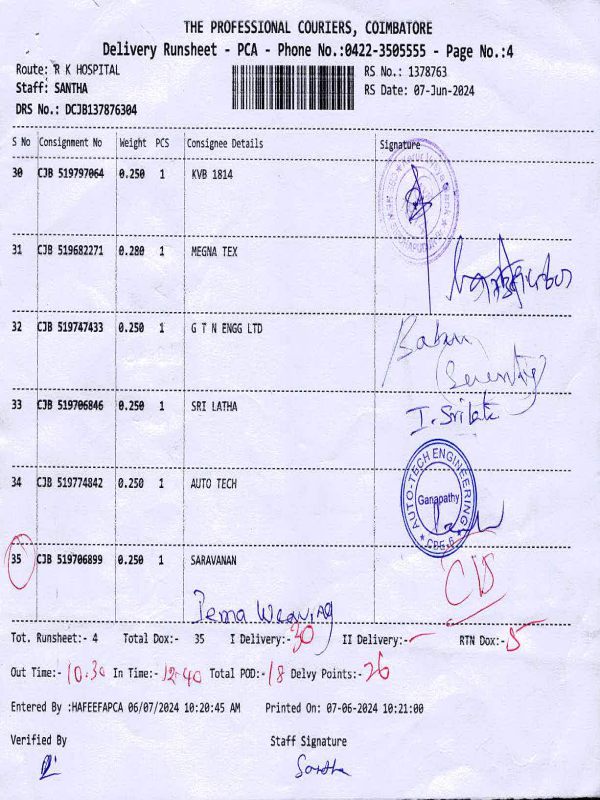 THE PROFESSIONAL COURIERS, COIMBATORE
Delivery Runsheet - PCA - Phone No.:0422-3505555 - Page No.:4
Route: R K HOSPITAL
RS No.: 1378763
Staff: SANTHA
RS Date: 07-Jun-2024
DRS No.: DCJB137876304
S No Consignment No Weight PCS Consignee Details Signature
30 CJB 519797064 0.250 1 KVB 1814
31 CJB 519682271 0.280 1 MEGNA TEX
32 CJB 519747433 0.250 1 G T N ENGG LTD
Babu
(Security)
33 CJB 519706846 0.250 1 SRI LATHA
I. Srilatc
34 CJB 519774842 0.250 1 AUTO TECH
AUTO-TECH ENGINEERING
Ganapathy
CBE-6
35 CJB 519706899 0.250 1 SARAVANAN
C/D
Pema Weaving
Tot. Runsheet:- 4 Total Dox:- 35 I Delivery:- 30 II Delivery:- - RTN Dox:- 5
Out Time:- 10:30 In Time:- 12-40 Total POD:- 18 Delvy Points:- 26
Entered By :HAFEEFAPCA 06/07/2024 10:20:45 AM Printed On: 07-06-2024 10:21:00
Verified By Staff Signature
Santha